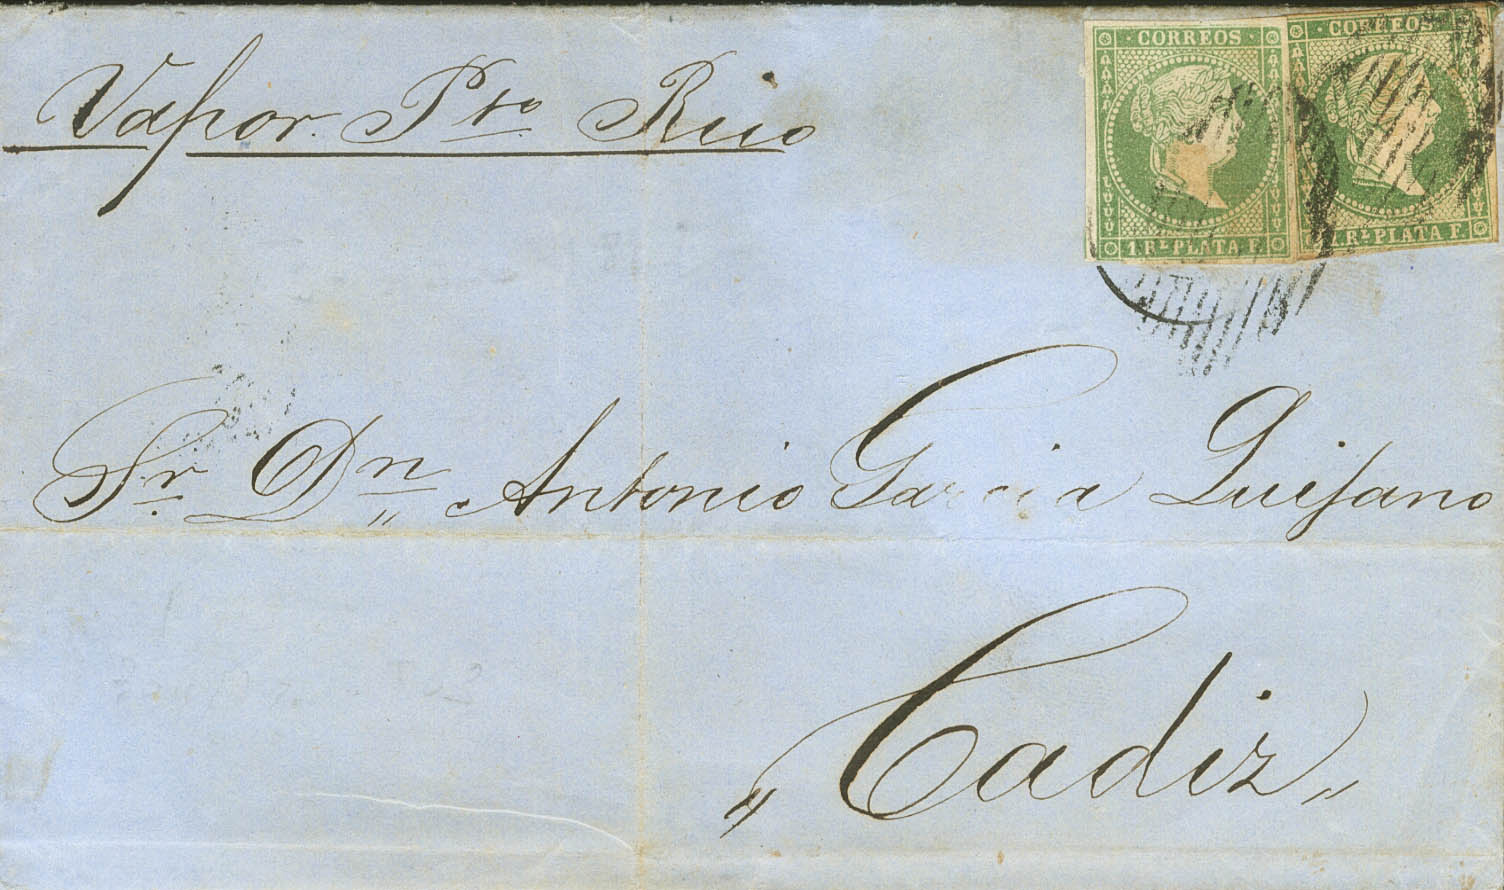 Vapor Pto Rico
CORREOS
1 RL PLATA F.
CORREOS
1 RL PLATA F.
Sr. Dn Antonio Garcia Quijano
"Cadiz"